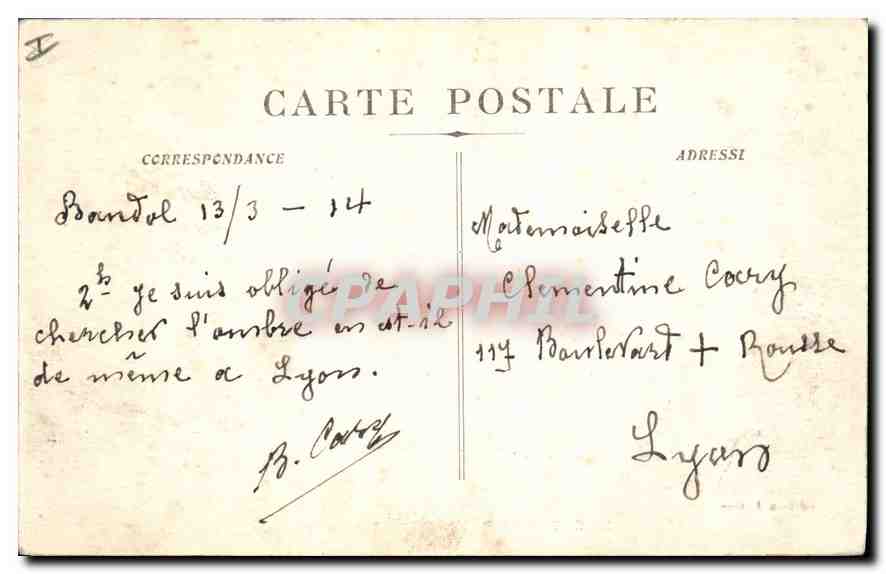 I
CARTE POSTALE
CORRESPONDANCE
Bandol 13/3 - 14
2h je suis obligé de
chercher l'ombre en est-il
de même a Lyon.
B. Cary
ADRESSE
Mademoiselle
Clementine Cary
117 Boulevart + Rousse
Lyon
CPAPHIL